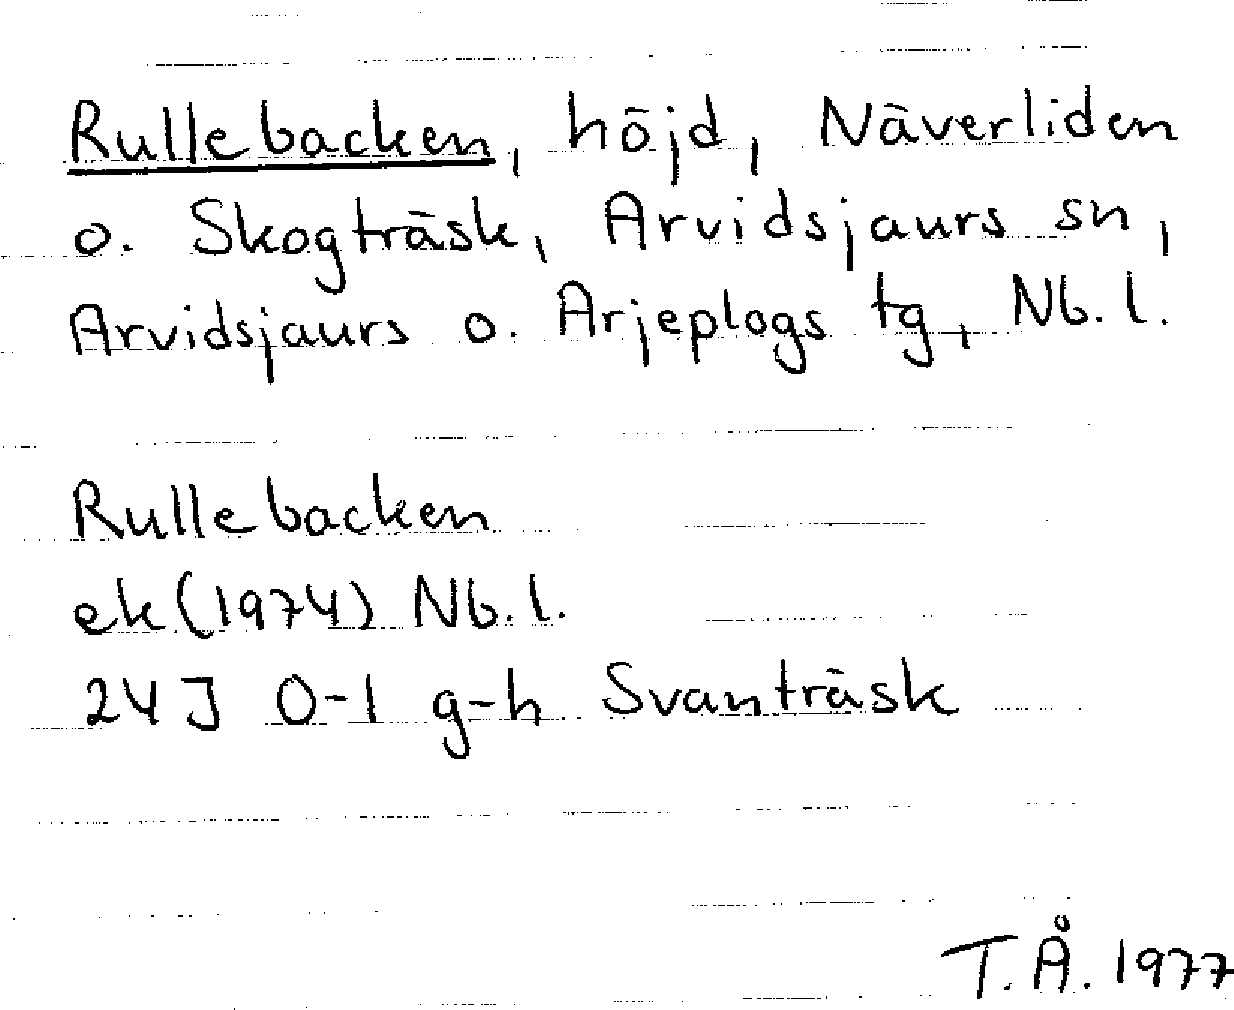 Rullebacken, höjd, Näverliden
o. Skogträsk, Arvidsjaurs sn,
Arvidsjaurs o. Arjeplogs tg, Nb. l.
Rullebacken
ek (1974) Nb. l.
24J 0-1 g-h Svanträsk
T.Å. 1977